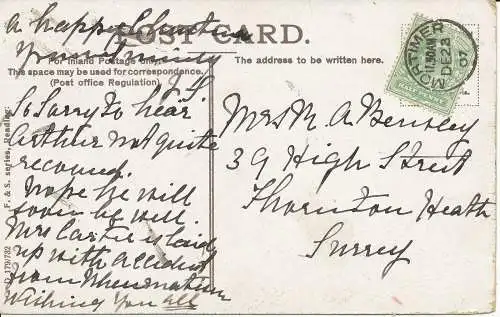 a happy
POST CARD.
For Inland Postage only,
This space may be used for correspondence.
(Post office Regulation)
The address to be written here.
MORTIMER
DE 23
07
HALFPENNY
So Sorry to hear
Arthur not quite
recoverd.
Hope he will
soon be well.
Mrs Carter is laid
up with
from Rheumatism
Wishing you all
Mrs M. A Bensley
39 High Street
Thornton Heath
Surrey
F. & S. series, Reading.